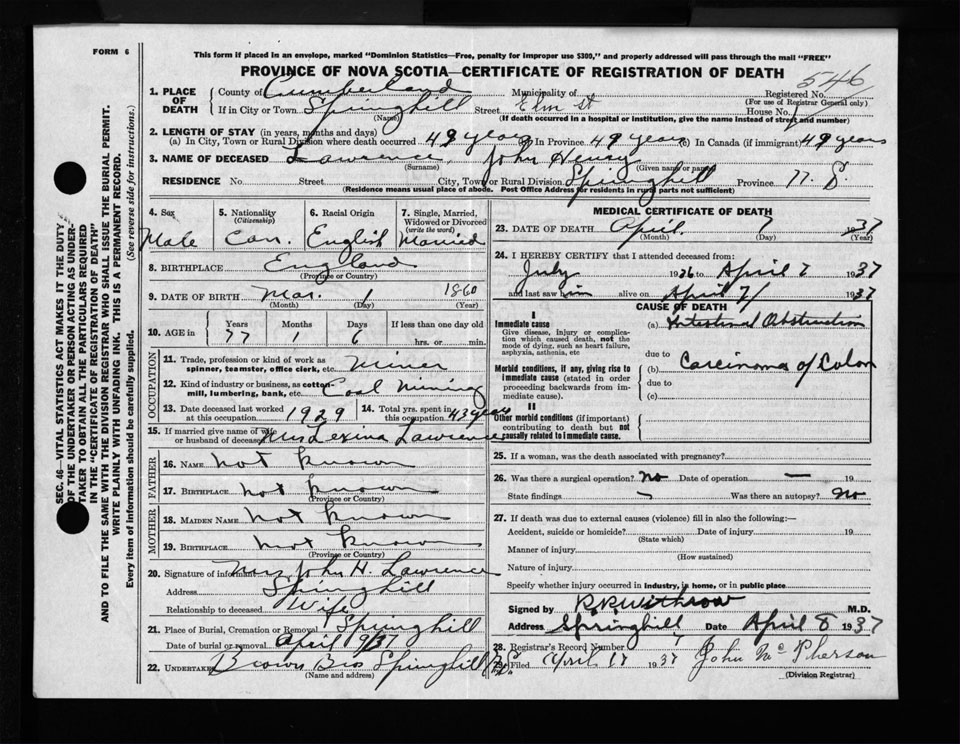 FORM 6
This form if placed in an envelope, marked "Dominion Statistics—Free, penalty for improper use $300," and properly addressed will pass through the mail "FREE"
PROVINCE OF NOVA SCOTIA—CERTIFICATE OF REGISTRATION OF DEATH
546
1. PLACE OF DEATH County of Cumberland Municipality of Registered No.
(For use of Registrar General only)
If in City or Town Springhill Street Elm St House No.
(Name) (If death occurred in a hospital or institution, give the name instead of street and number)
2. LENGTH OF STAY (in years, months and days)
(a) In City, Town or Rural Division where death occurred 49 years (b) In Province 49 years (c) In Canada (if immigrant) 49 years
3. NAME OF DECEASED Lawrence, John Henry
(Surname) (Given name or names)
RESIDENCE No. Street City, Town or Rural Division Springhill Province N. S.
(Residence means usual place of abode. Post Office Address for residents in rural parts not sufficient)
4. Sex Male
5. Nationality (Citizenship) Can.
6. Racial Origin English
7. Single, Married, Widowed or Divorced (write the word) Married
8. BIRTHPLACE England
(Province or Country)
9. DATE OF BIRTH Mar. 1 1860
(Month) (Day) (Year)
10. AGE in Years Months Days If less than one day old
77 1 6 hrs. or min.
OCCUPATION
11. Trade, profession or kind of work as spinner, teamster, office clerk, etc. Miner
12. Kind of industry or business, as cotton-mill, lumbering, bank, etc. Coal Mining
13. Date deceased last worked at this occupation 1929
14. Total yrs. spent in this occupation 43 years
15. If married give name of wife or husband of deceased Mrs Lexina Lawrence
FATHER
16. NAME not known
17. BIRTHPLACE not known
(Province or Country)
MOTHER
18. MAIDEN NAME not known
19. BIRTHPLACE not known
(Province or Country)
20. Signature of informant Mrs John H. Lawrence
Address Springhill
Relationship to deceased Wife
21. Place of Burial, Cremation or Removal Springhill
Date of burial or removal April 9/37
22. UNDERTAKER Brown Bro Springhill N.S.
(Name and address)
MEDICAL CERTIFICATE OF DEATH
23. DATE OF DEATH April 7 1937
(Month) (Day) (Year)
24. I HEREBY CERTIFY that I attended deceased from:
July 1936 to April 7 1937
and last saw him alive on April 7/ 1937
CAUSE OF DEATH
I
Immediate cause (a) Intestinal Obstruction
Give disease, injury or complication which caused death, not the mode of dying, such as heart failure, asphyxia, asthenia, etc
due to
Morbid conditions, if any, giving rise to immediate cause (stated in order proceeding backwards from immediate cause).
(b) Carcinoma of Colon
due to
(c)
II
Other morbid conditions (if important) contributing to death but not causally related to immediate cause.
25. If a woman, was the death associated with pregnancy?
26. Was there a surgical operation? no Date of operation — 19
State findings — Was there an autopsy? no
27. If death was due to external causes (violence) fill in also the following:—
Accident, suicide or homicide? Date of injury 19
(State which)
Manner of injury
(How sustained)
Nature of injury
Specify whether injury occurred in industry, in home, or in public place
Signed by R R Withrow M.D.
Address Springhill Date April 8 1937
28. Registrar's Record Number 7
29. Filed April 17 1937 John McPherson
(Division Registrar)
SEC. 46—VITAL STATISTICS ACT MAKES IT THE DUTY
OF THE UNDERTAKER OR PERSON ACTING AS UNDER-
TAKER TO OBTAIN ALL THE PARTICULARS REQUIRED
IN THE "CERTIFICATE OF REGISTRATION OF DEATH"
AND TO FILE THE SAME WITH THE DIVISION REGISTRAR WHO SHALL ISSUE THE BURIAL PERMIT.
WRITE PLAINLY WITH UNFADING INK. THIS IS A PERMANENT RECORD.
Every item of information should be carefully supplied. (See reverse side for instructions.)